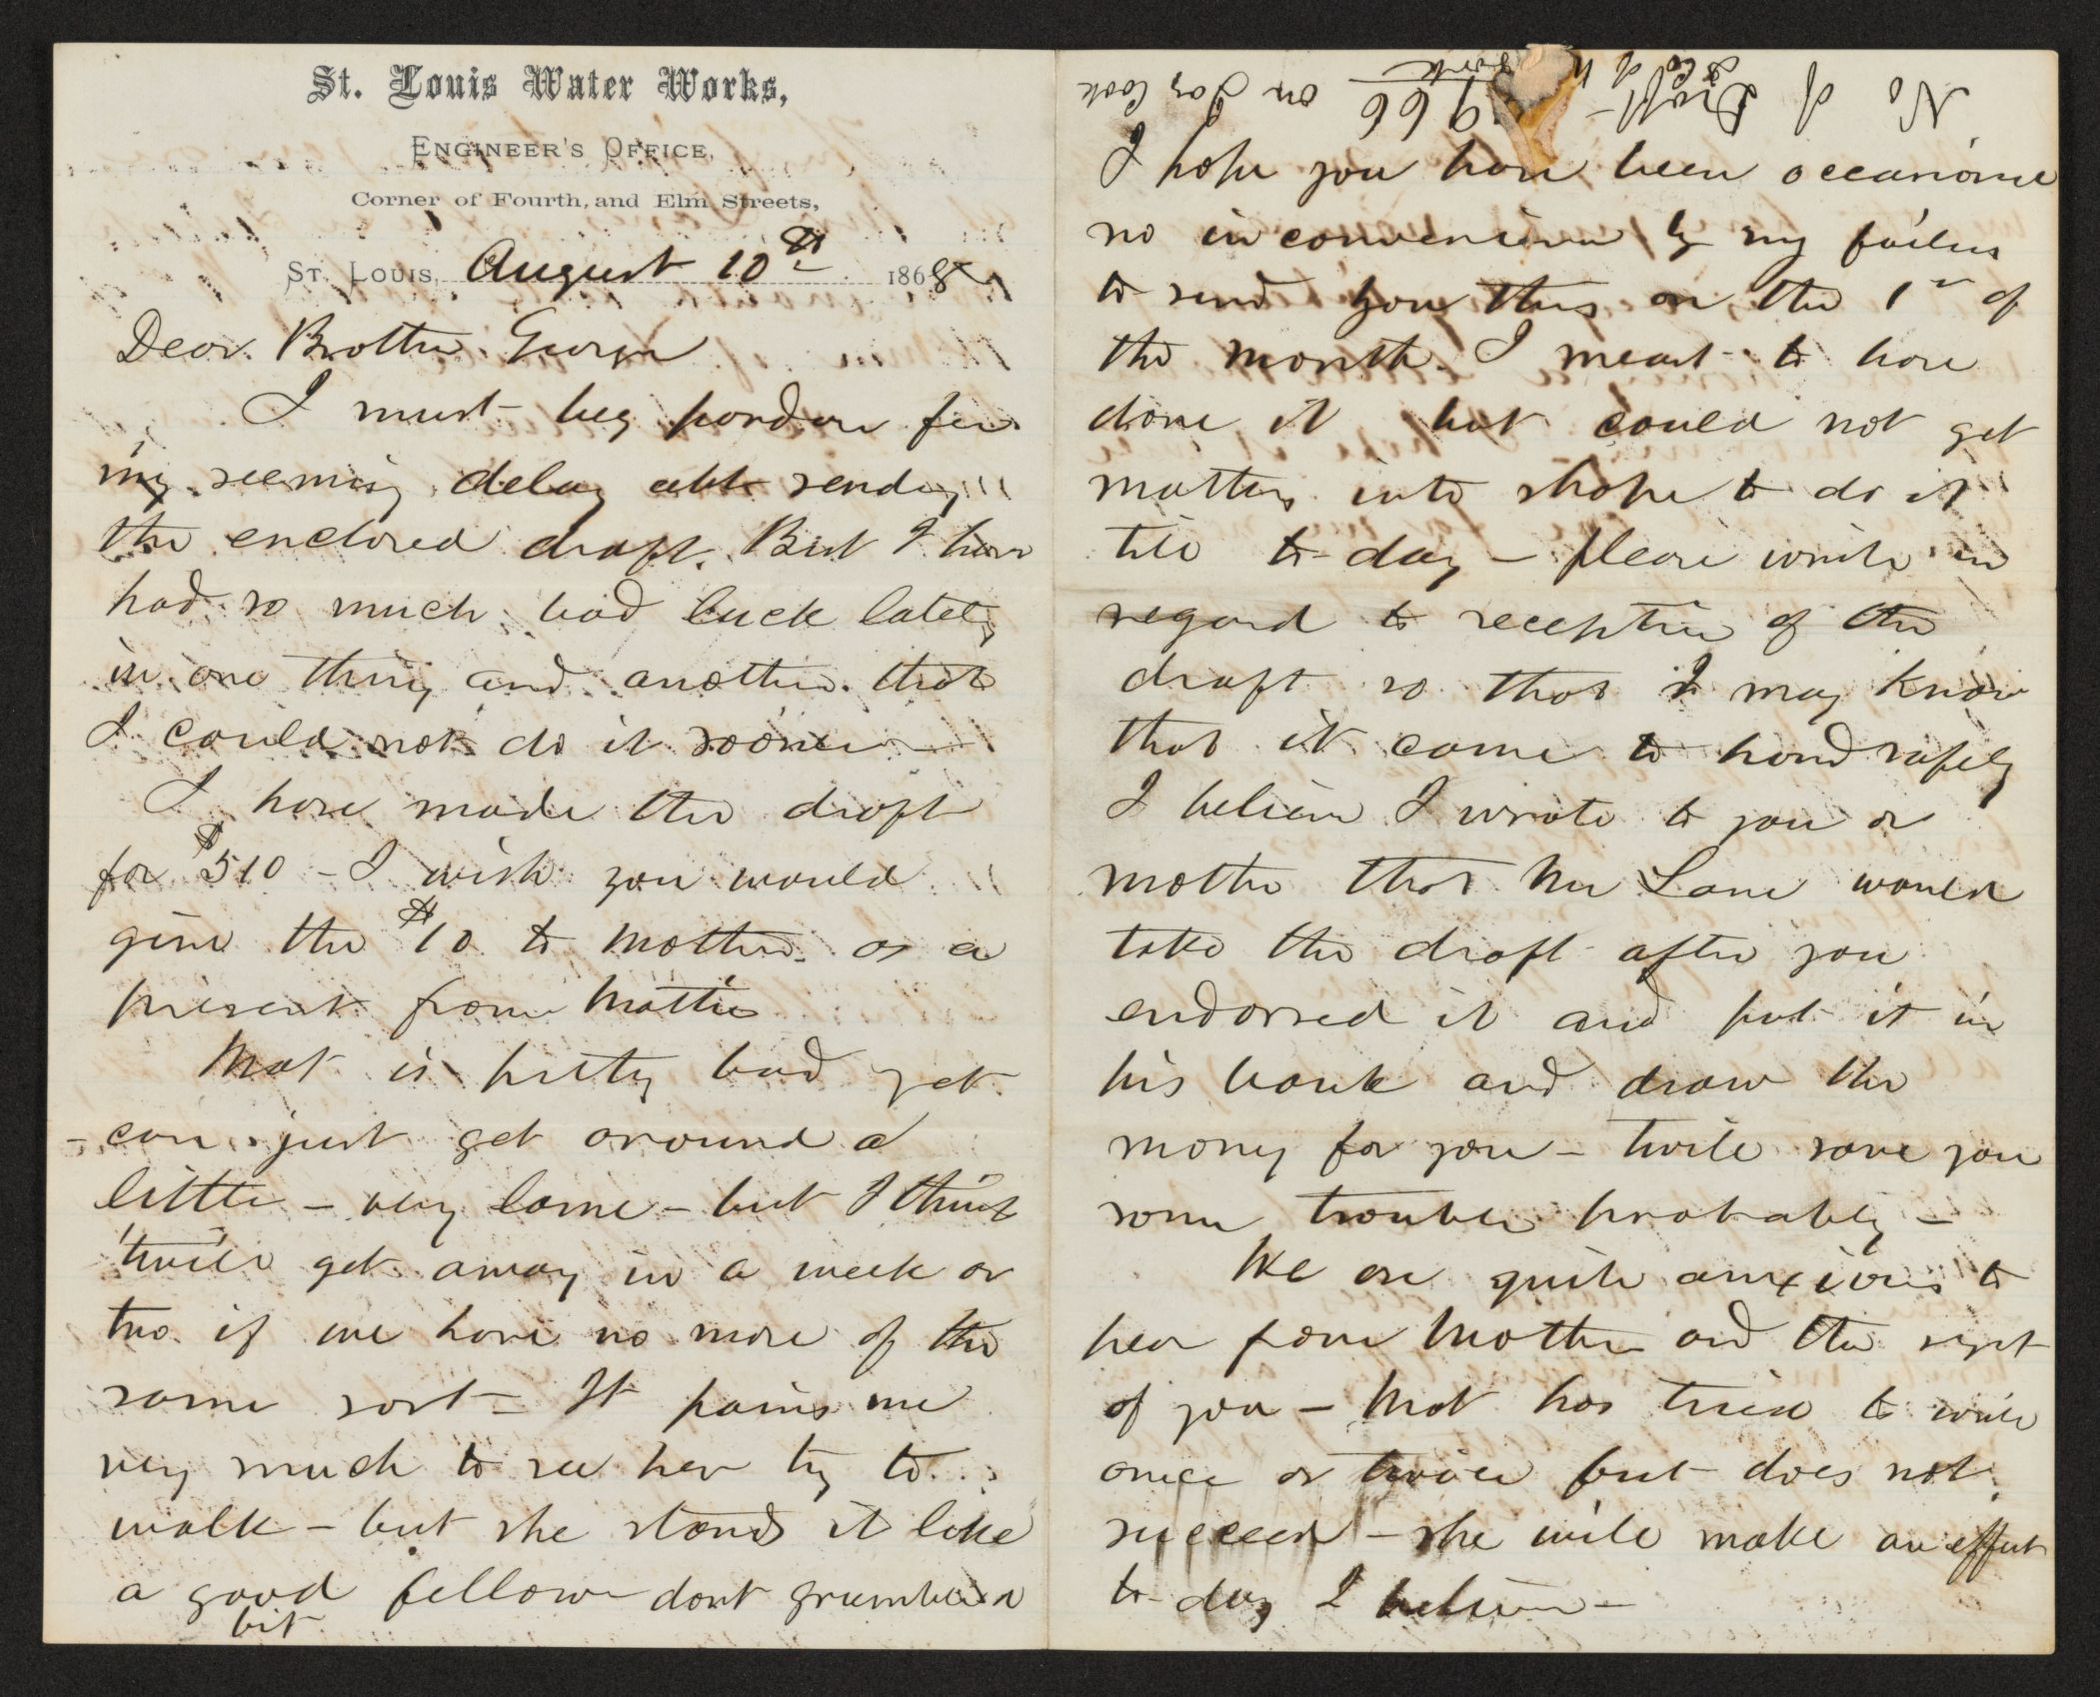 St. Louis Water Works,
Engineer's Office,
Corner of Fourth, and Elm Streets,
St. Louis, August 10th 1868
Dear Brother George
I must beg pardon for
my seeming delay abt sending
the enclosed draft. But I have
had so much bad luck lately
in one thing and another that
I could not do it sooner
I have made the draft
for $510 – I wish you would
give the $10 to mother as a
present from Mattie
Mat is pretty bad yet
– can just get around a
little – very lame – but I think
'twill get away in a week or
two if we have no more of the
same sort – It pains me
very much to see her try to
walk – but she stands it like
a good fellow dont grumble a
bit
No of Draft 966 on Jay Cook
& Co of N York
I hope you have been occasione
no inconvenience by my failure
to send you this on the 1st of
the month. I meant to have
done it but could not get
matters into shape to do it
till to-day – please write in
regard to reception of the
draft so that I may know
that it came to hand safely
I believe I wrote to you or
mother that Mr Lane would
take the draft after you
endorsed it and put it in
his bank and draw the
money for you – twill save you
some trouble probably –
We are quite anxious to
hear from Mother and the rest
of you – Mat has tried to write
once or twice but does not
succeed – she will make an effort
to-day I believe –